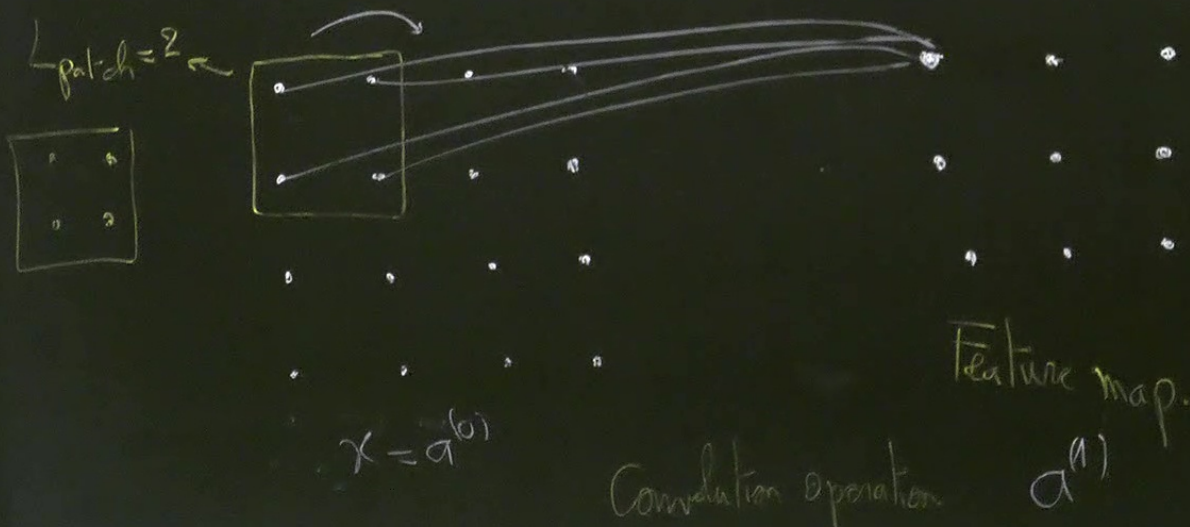 L patch = 2
x = a^(0)
Feature map.
Convolution operation
a^(1)